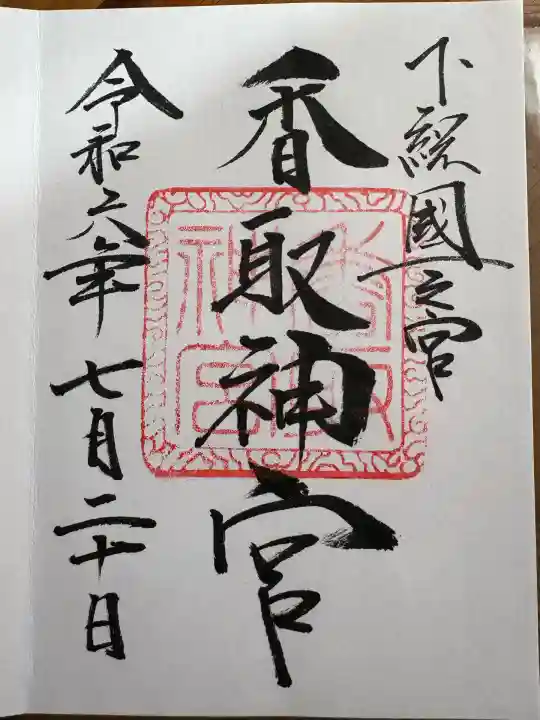 下総國一之宮
香取神宮
香取神宮
令和六年七月二十日